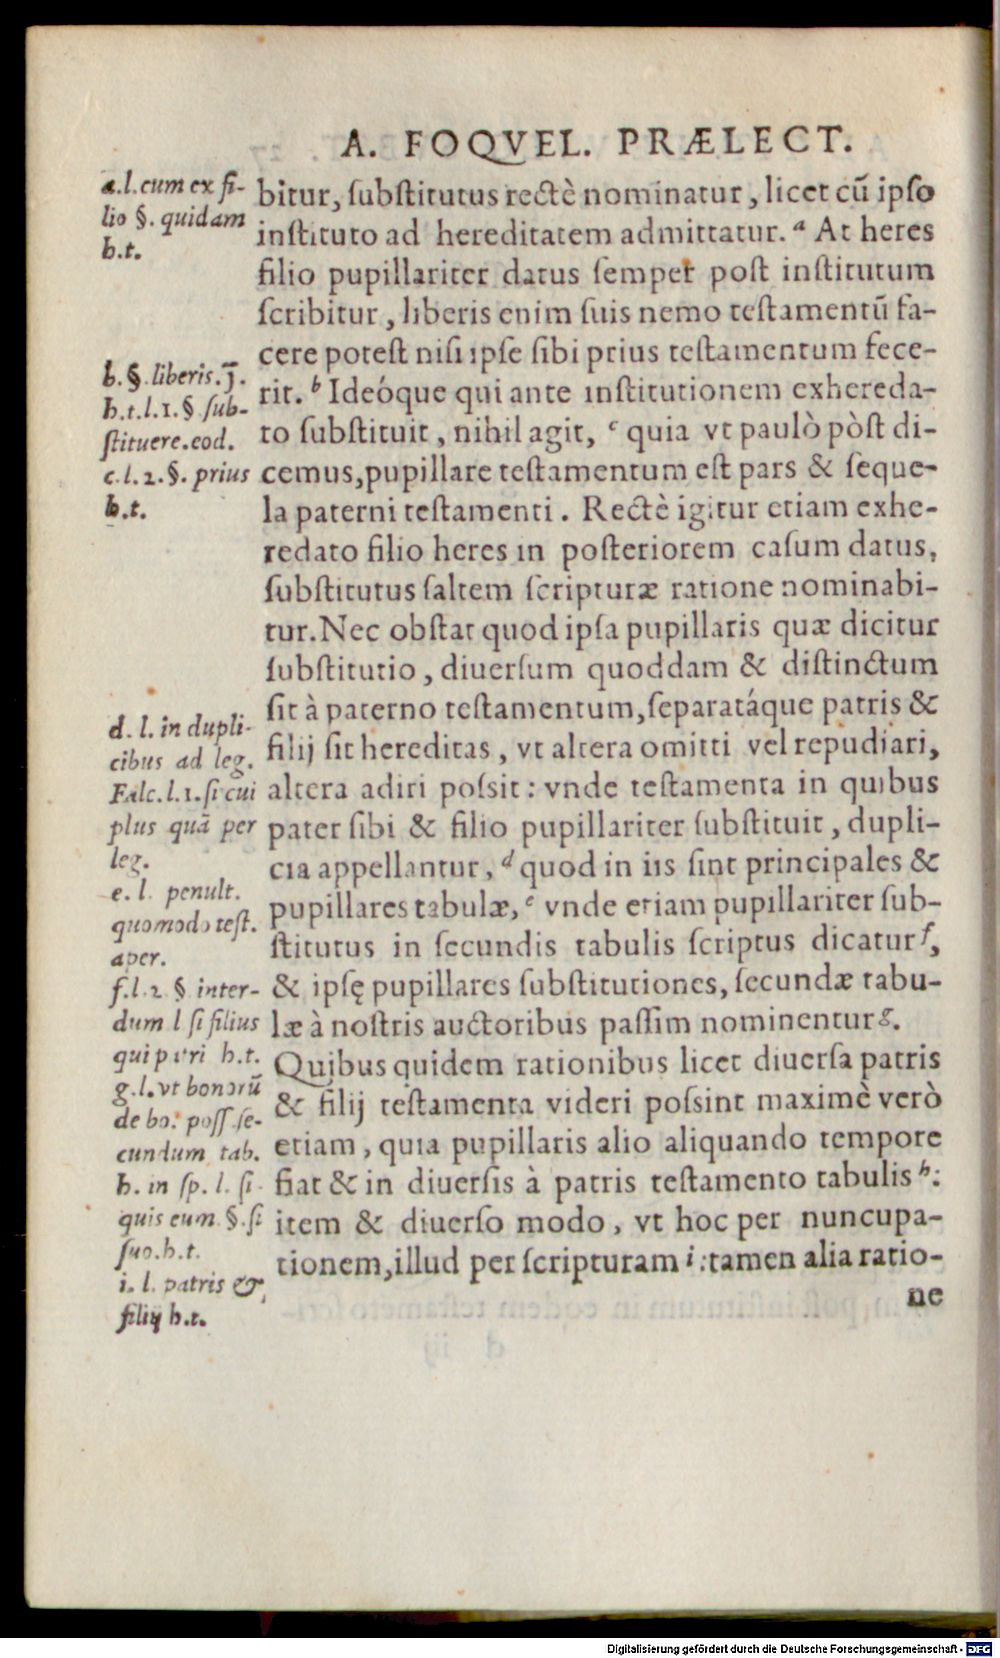 A. FOQVEL. PRÆLECT.
a.l.cum ex fi-
lio §. quidam
h.t.
b.§.liberis.j̄.
h.t.l.1.§ ſub-
ſtituere.eod.
c.l.2.§. prius
h.t.
d. l. in dupli-
cibus ad leg.
Falc.l.1.ſi cui
plus quā per
leg.
e. l. penult.
quomodo teſt.
aper.
f.l.2 § inter-
dum l ſi filius
qui patri h.t.
g.l.vt bonorū
de bo. poſſ.ſe-
cundum tab.
h. in ſp. l. ſi
quis eum §.ſi
ſuo.h.t.
i. l. patris &
filij h.t.
bitur, ſubſtitutus rectè nominatur, licet cū ipſo
inſtituto ad hereditatem admittatur. a At heres
filio pupillariter datus ſemper poſt inſtitutum
ſcribitur, liberis enim ſuis nemo teſtamentū fa-
cere poteſt niſi ipſe ſibi prius teſtamentum fece-
rit. b Ideóque qui ante inſtitutionem exhereda-
to ſubſtituit, nihil agit, c quia vt paulò pòſt di-
cemus, pupillare teſtamentum eſt pars & ſeque-
la paterni teſtamenti. Rectè igitur etiam exhe-
redato filio heres in poſteriorem caſum datus,
ſubſtitutus ſaltem ſcripturæ ratione nominabi-
tur. Nec obſtat quod ipſa pupillaris quæ dicitur
ſubſtitutio, diuerſum quoddam & diſtinctum
ſit à paterno teſtamentum, ſeparatáque patris &
filij ſit hereditas, vt altera omitti vel repudiari,
altera adiri poſsit: vnde teſtamenta in quibus
pater ſibi & filio pupillariter ſubſtituit, dupli-
cia appellantur, d quod in iis ſint principales &
pupillares tabulæ, e vnde etiam pupillariter ſub-
ſtitutus in ſecundis tabulis ſcriptus dicatur f,
& ipſę pupillares ſubſtitutiones, ſecundæ tabu-
læ à noſtris auctoribus paſſim nominentur g.
Quibus quidem rationibus licet diuerſa patris
& filij teſtamenta videri poſsint maximè verò
etiam, quia pupillaris alio aliquando tempore
fiat & in diuerſis à patris teſtamento tabulis h:
item & diuerſo modo, vt hoc per nuncupa-
tionem, illud per ſcripturam i: tamen alia ratio-
ne
Digitalisierung gefördert durch die Deutsche Forschungsgemeinschaft - DFG